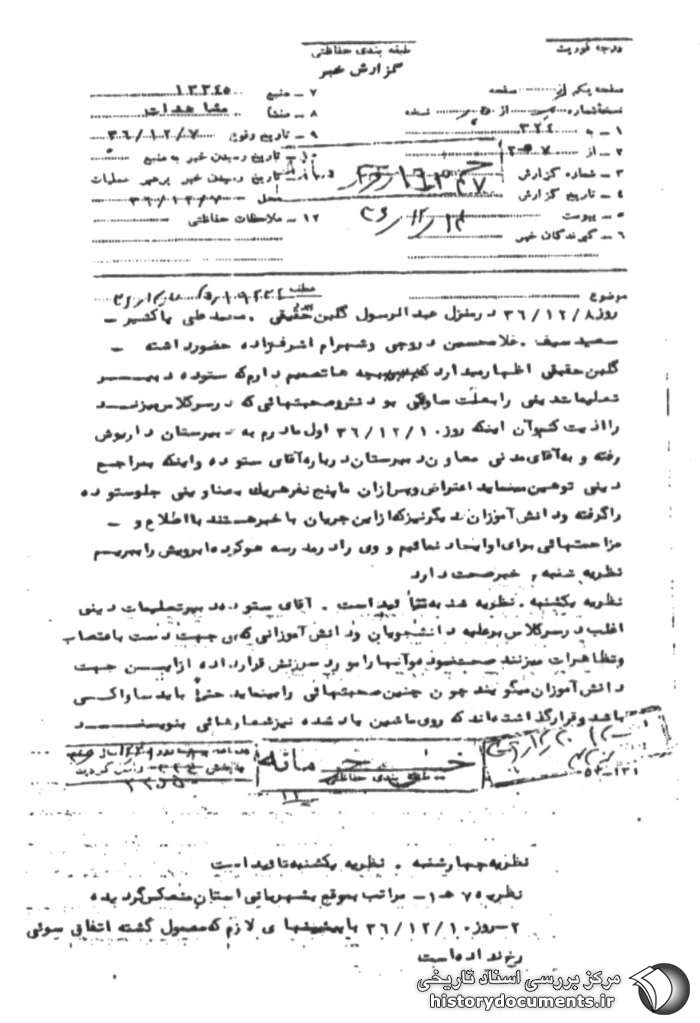 درجه فوریت
طبقه بندی حفاظتی
گزارش خبر
صفحه یکم از صفحه
نسخه شماره از نسخه
۱ – به ۳۲٤
۲ – از
۳ – شماره گزارش
٤ – تاریخ گزارش
۵ – پیوست
٦ – گیرندگان خبر
۷ – منبع ۱۳۳٤۵
۸ – منشا مشاهدات
۹ – تاریخ وقوع ۳٦/۱۲/۷
۱۰ – تاریخ رسیدن خبر به منبع
تاریخ رسیدن خبر برهبر عملیات
محل ۳٦/۱۲/۷
۱۲ – ملاحظات حفاظتی
موضوع
روز ۳٦/۱۲/۸ در منزل عبدالرسول گلبن حقیقی . محمد علی پاکشیر –
سعید سیف . غلامحسین دروجی و شهرام اشرف زاده حضور داشته –
گلبن حقیقی اظهار میدارد که بچه ها تصمیم داریم که ستوده دبیر
تعلیمات دینی را بعلت ساواکی بودنش و صحبتهائی که در سر کلاس میزند
را اذیت کنیم آن اینکه روز ۳٦/۱۲/۱۰ اول مادرم به دبیرستان داریوش
رفته و به آقای مدنی معاون دبیرستان درباره آقای ستوده و اینکه بمراجع
دینی توهین مینماید اعتراض و پس از آن ما پنج نفر هریک بعناوینی جلو ستوده
را گرفته و دانش آموزان دیگر نیز که از این جریان با خبر هستند با اطلاع و –
مزاحمتهائی برای او ایجاد نمائیم و وی را در مدرسه هو کرده ابرویش را ببریم
نظریه شنبه . خبر صحت دارد
نظریه یکشنبه . نظریه شنبه تائید است . آقای ستوده دبیر تعلیمات دینی
اغلب در سر کلاس بر علیه دانشجویان و دانش آموزانی که بی جهت دست باعتصاب
و تظاهرات میزنند صحبت نموده و آنها را مورد سرزنش قرار داده از این جهت
دانش آموزان میگویند چون چنین صحبتهائی را مینماید حتما باید ساواکی
باشد و قرار گذاشته اند که روی ماشین یاد شده نیز شعارهائی بنویسند
خیلی محرمانه
طبقه بندی حفاظتی
۵۲-۱۲۱
نظریه چهارشنبه . نظریه یکشنبه تائید است
نظریه ۷ ه ۱- مراتب بموقع بشهربانی استان منعکس گردیده
۲-روز ۳٦/۱۲/۱۰ با پیشبینیهای لازم که معمول گشته اتفاق سوئی
رخ نداده است
مرکز بررسی اسناد تاریخی
historydocuments.ir